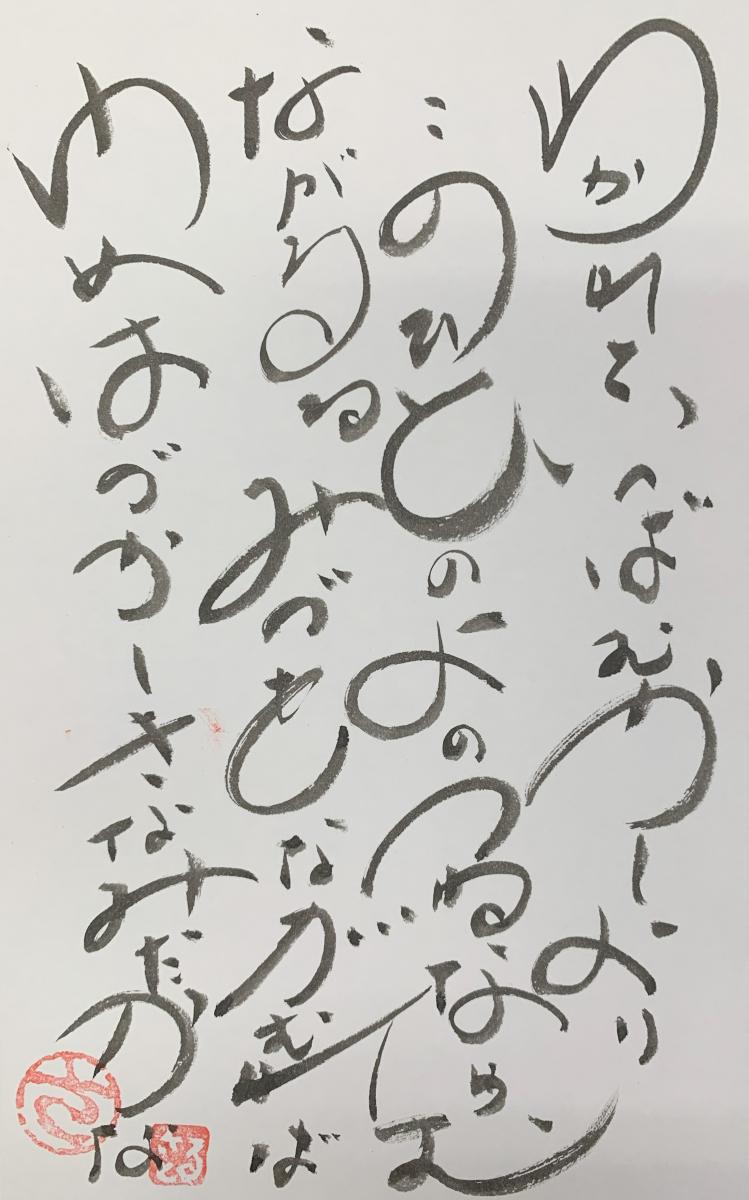 わかれといへばむかしより
このひとのよのつねなるを
ながるるみづをながむれば
ゆめはづかしきなみだかな